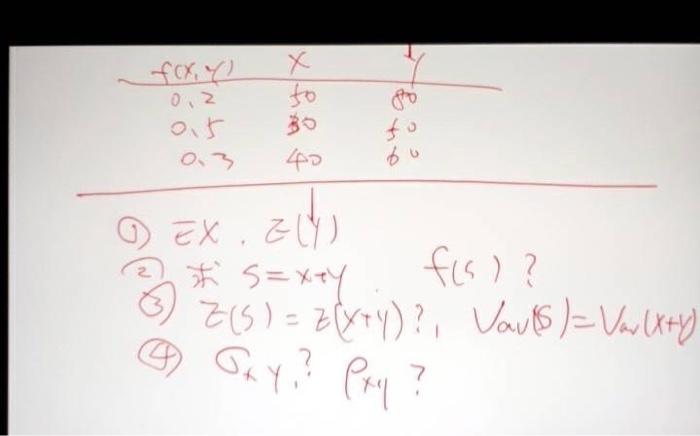 f(x,y) X Y
0.2 50 80
0.5 30 50
0.3 40 60
① EX . E(Y)
② 求 S=x+y . f(s)?
③ E(S) = E(x+y)?, Var(S)=Var(x+y)
④ σxy? ρxy?